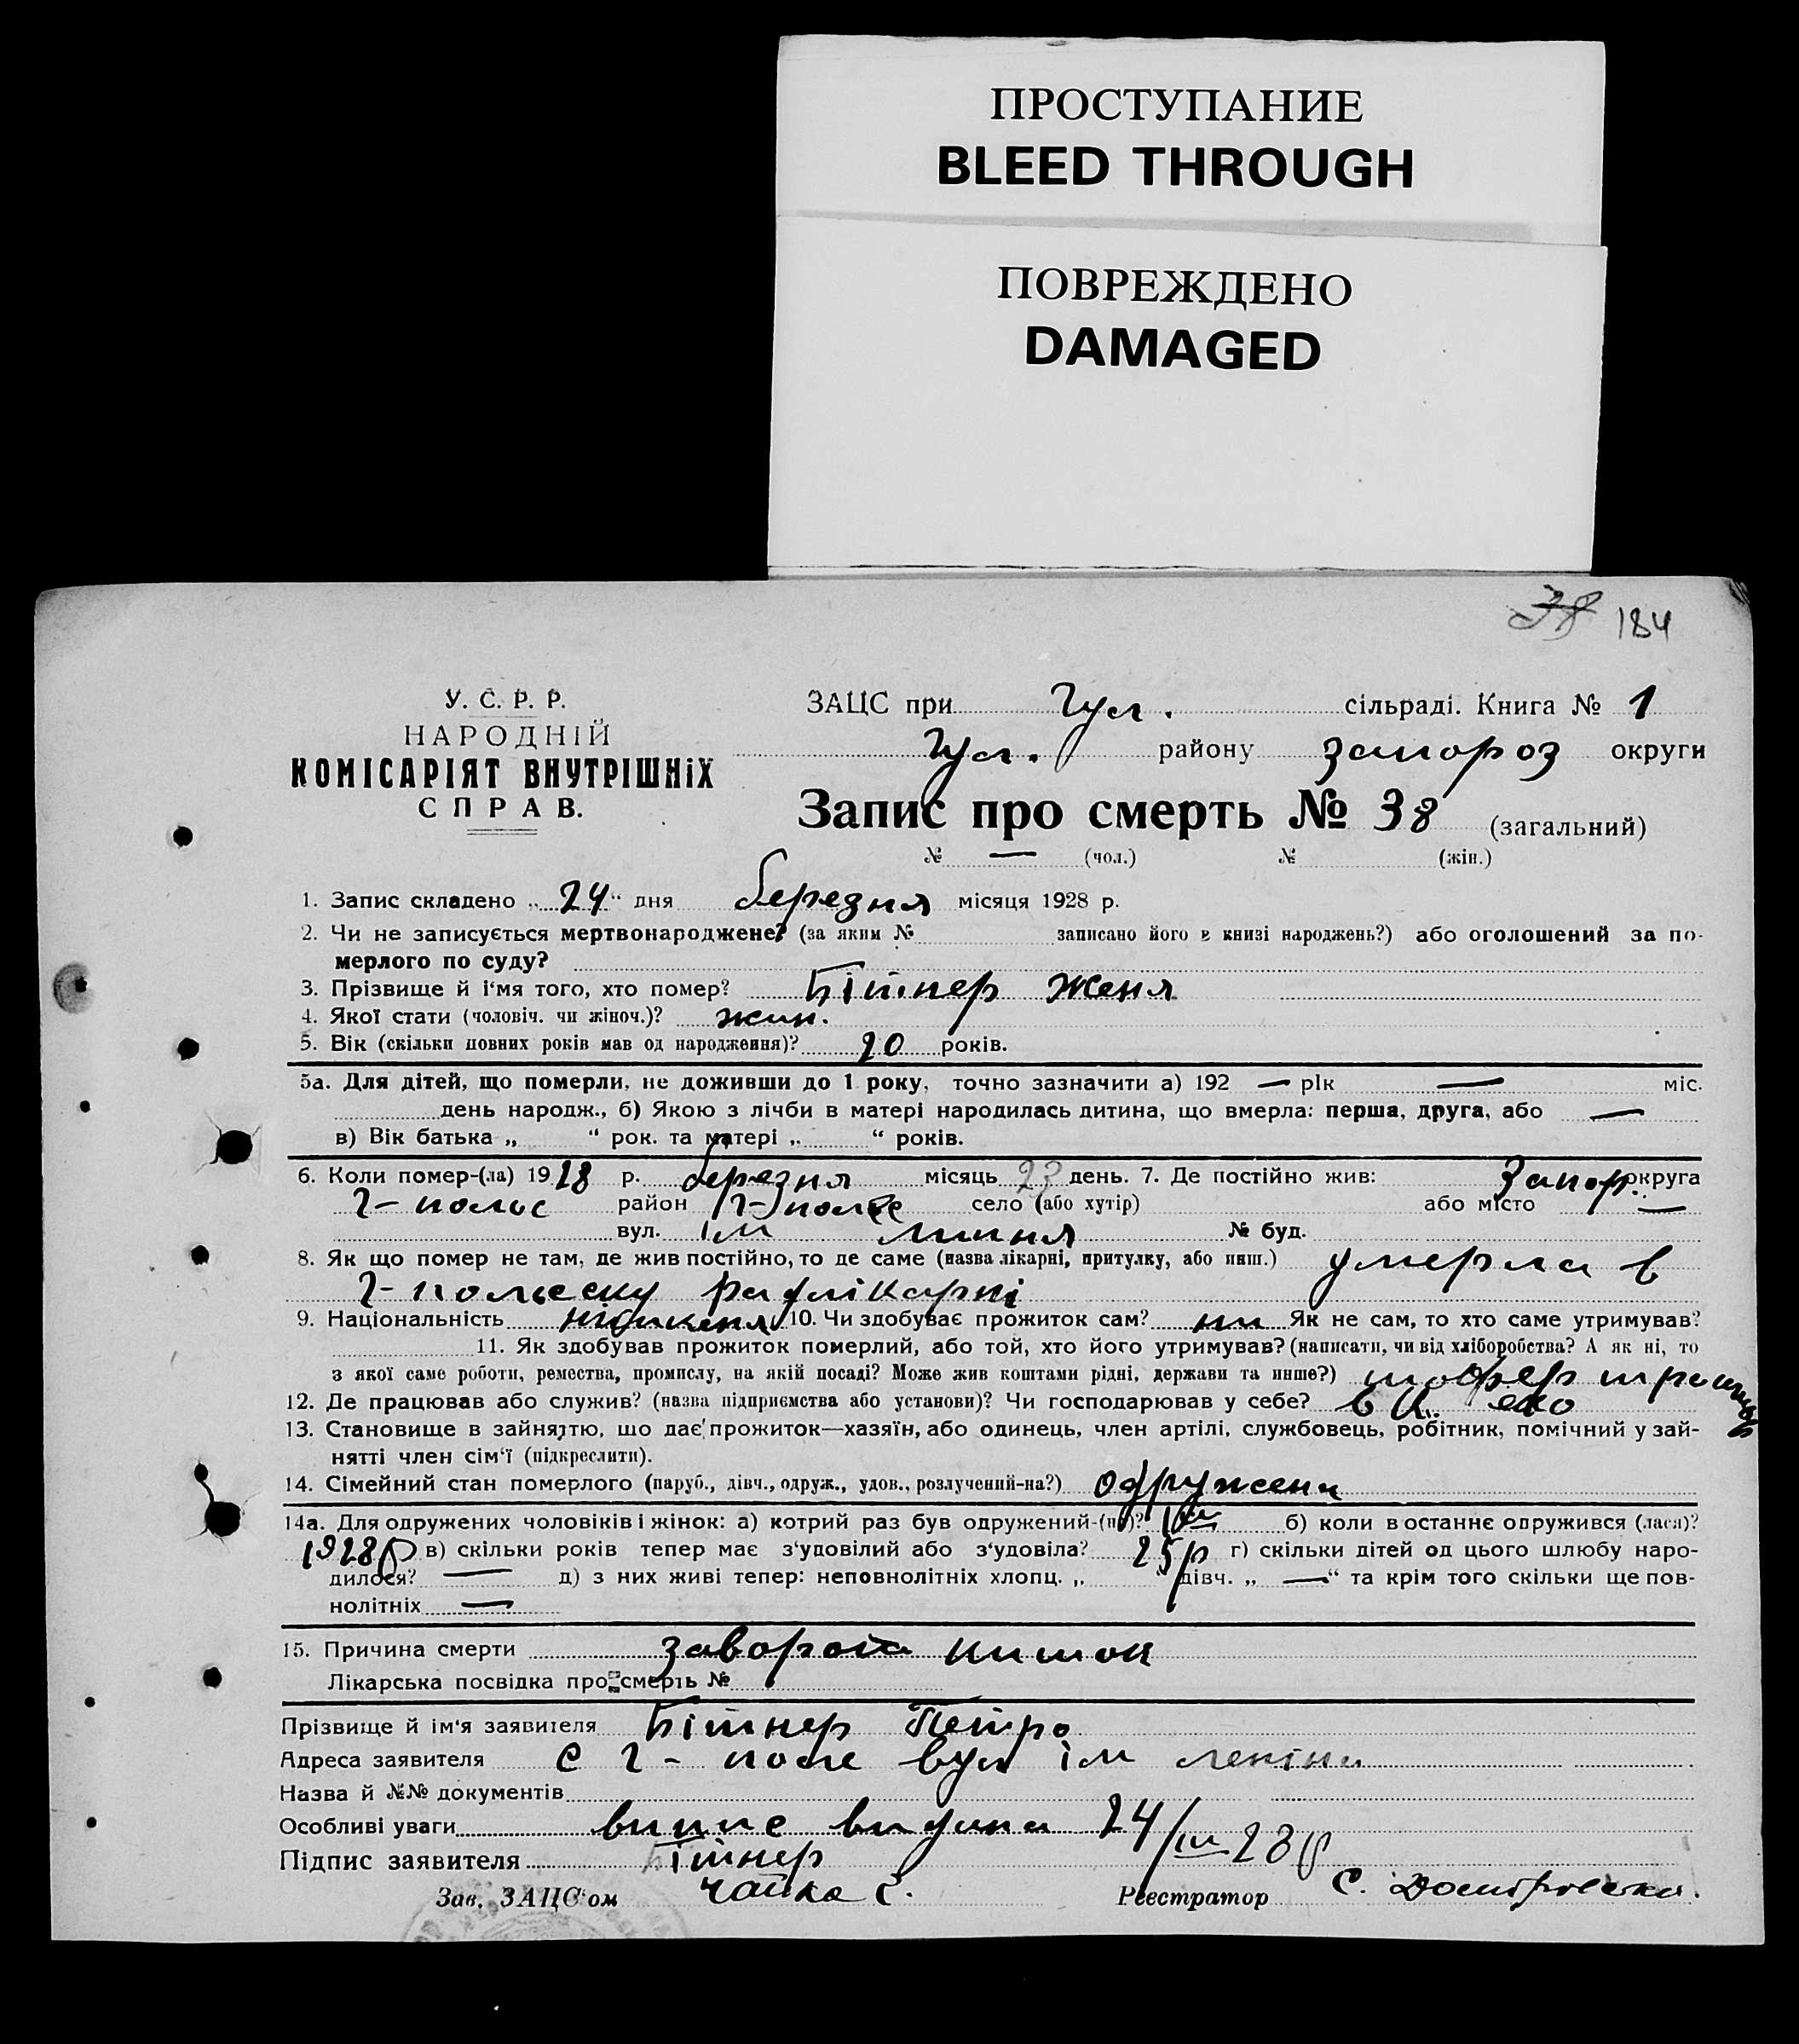 ПРОСТУПАНИЕ
BLEED THROUGH
ПОВРЕЖДЕНО
DAMAGED
38 184
У. С. Р. Р.
НАРОДНІЙ
КОМІСАРІЯТ ВНУТРІШНІХ
СПРАВ.
ЗАЦС при Гул. сільраді. Книга № 1
Гул. району Запороз округи
Запис про смерть № 38 (загальний)
№ — (чол.) № (жін.)
1. Запис складено „ 24 “ дня березня місяця 1928 р.
2. Чи не записується мертвонароджене? (за яким № записано його в книзі народжень?) або оголошений за по-
мерлого по суду?
3. Прізвище й і'мя того, хто помер? Бітнер Женя
4. Якої стати (чоловіч. чи жіноч.)? жин.
5. Вік (скільки повних років мав од народження)? 20 років.
5а. Для дітей, що померли, не доживши до 1 року, точно зазначити а) 192 — рік — міс.
день народж., б) Якою з лічби в матері народилась дитина, що вмерла: перша, друга, або —
в) Вік батька „ “ рок. та матері „ “ років.
6. Коли помер-(ла) 1928 р. березня місяць 23 день. 7. Де постійно жив: Запор. округа
Г-польс район Г-полье село (або хутір) або місто —
вул. ім № буд.
8. Як що помер не там, де жив постійно, то де саме (назва лікарні, притулку, або инш.) умерла в
Г-польску райлікарні
9. Національність 10. Чи здобуває прожиток сам? ни Як не сам, то хто саме утримував?
11. Як здобував прожиток померлий, або той, хто його утримував? (написати, чи від хліборобства? А як ні, то
з якої саме роботи, ремества, промислу, на якій посаді? Може жив коштами рідні, держави та инше?) шофер
12. Де працював або служив? (назва підприємства або установи)? Чи господарював у себе? в
13. Становище в зайнятю, що дає прожиток—хазяїн, або одинець, член артілі, службовець, робітник, помічний у зай-
нятті член сім'ї (підкреслити).
14. Сімейний стан померлого (паруб., дівч., одруж., удов., розлучений-на?) одружена
14а. Для одружених чоловіків і жінок: а) котрий раз був одружений-(на)? 1й б) коли в останнє одружився (лася)?
1928р в) скільки років тепер має з'удовілий або з'удовіла? 25р г) скільки дітей од цього шлюбу наро-
дилося? — д) з них живі тепер: неповнолітніх хлопц. „ “ дівч. „ — “ та крім того скільки ще пов-
нолітніх —
15. Причина смерти заворота кишок
Лікарська посвідка про смерть №
Прізвище й ім'я заявителя Бітнер Петро
Адреса заявителя С Г- поле вул ім леніна
Назва й №№ документів
Особливі уваги випис видана 24/III 28р
Підпис заявителя Бітнер
Зав. ЗАЦС'ом Чайка С. Реєстратор С.